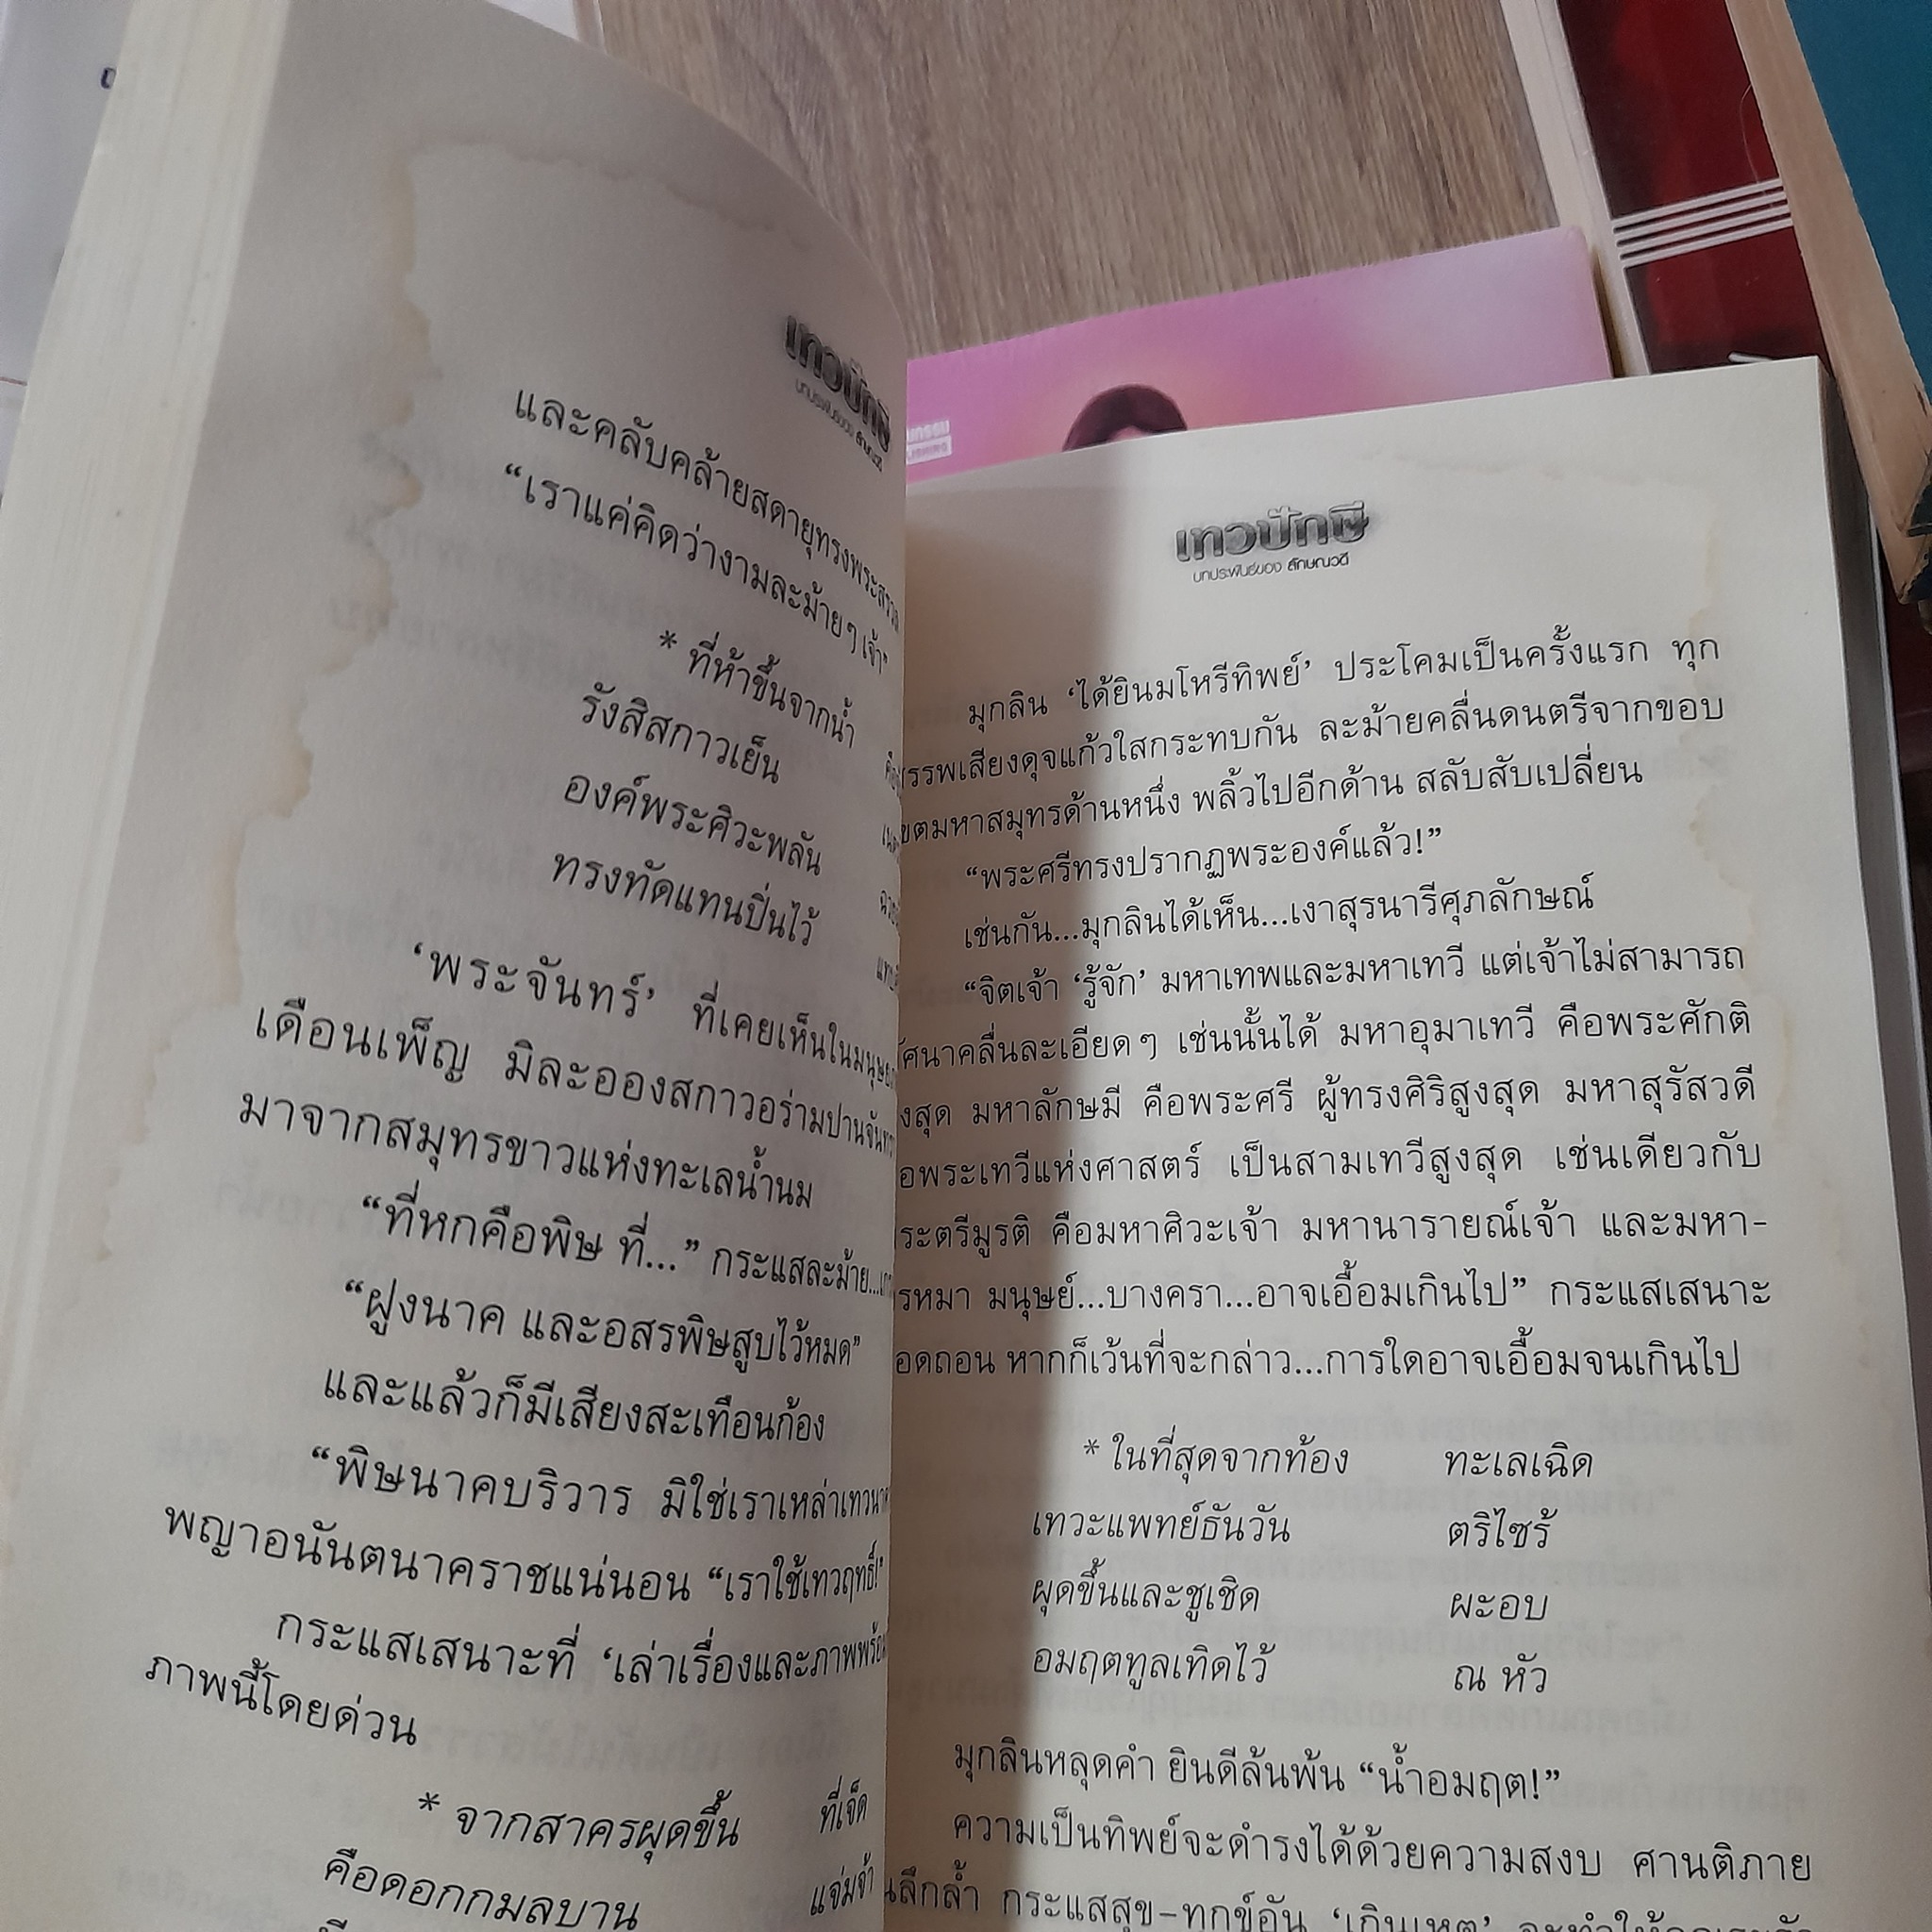 เทวปักษี
บทประพันธ์ของ ลักษณวดี
และคลับคล้ายสดายุทรงพระสรวล
“เราแค่คิดว่างามละม้ายๆ เจ้า”
* ที่ห้าขึ้นจากน้ำ
รังสิสกาวเย็น
องค์พระศิวะพลัน
ทรงทัดแทนปิ่นไว้
‘พระจันทร์’ ที่เคยเห็นใน
เดือนเพ็ญ มิละอองสกาวอร่ามปาน
มาจากสมุทรขาวแห่งทะเลน้ำนม
“ที่หกคือพิษ ที่...” กระแสละม้าย...
“ฝูงนาค และอสรพิษสูบไว้หมด”
และแล้วก็มีเสียงสะเทือนก้อง
“พิษนาคบริวาร มิใช่เราเหล่า
พญาอนันตนาคราชแน่นอน “เราใช้เทวฤทธิ์!”
กระแสเสนาะที่ ‘เล่าเรื่องและภาพ
ภาพนี้โดยด่วน
* จากสาครผุดขึ้น ที่เจ็ด
คือดอกกมลบาน แจ่มจ้า
เทวปักษี
บทประพันธ์ของ ลักษณวดี
มุกลิน ‘ได้ยินมโหรีทิพย์’ ประโคมเป็นครั้งแรก ทุก
สรรพเสียงดุจแก้วใสกระทบกัน ละม้ายคลื่นดนตรีจากขอบ
เขตมหาสมุทรด้านหนึ่ง พลิ้วไปอีกด้าน สลับสับเปลี่ยน
“พระศรีทรงปรากฏพระองค์แล้ว!”
เช่นกัน...มุกลินได้เห็น...เงาสุรนารีศุภลักษณ์
“จิตเจ้า ‘รู้จัก’ มหาเทพและมหาเทวี แต่เจ้าไม่สามารถ
ทัศนาคลื่นละเอียดๆ เช่นนั้นได้ มหาอุมาเทวี คือพระศักติ
สูงสุด มหาลักษมี คือพระศรี ผู้ทรงศิริสูงสุด มหาสุรัสวดี
คือพระเทวีแห่งศาสตร์ เป็นสามเทวีสูงสุด เช่นเดียวกับ
พระตรีมูรติ คือมหาศิวะเจ้า มหานารายณ์เจ้า และมหา-
พรหมา มนุษย์...บางครา...อาจเอื้อมเกินไป” กระแสเสนาะ
ทอดถอน หากก็เว้นที่จะกล่าว...การใดอาจเอื้อมจนเกินไป
* ในที่สุดจากท้อง ทะเลเฉิด
เทวะแพทย์ธันวัน ตริไซร้
ผุดขึ้นและชูเชิด ผะอบ
อมฤตทูลเทิดไว้ ณ หัว
มุกลินหลุดคำ ยินดีล้นพ้น “น้ำอมฤต!”
ความเป็นทิพย์จะดำรงได้ด้วยความสงบ ศานติภาย
ในลึกล้ำ กระแสสุข-ทุกข์อัน ‘เกินเหตุ’